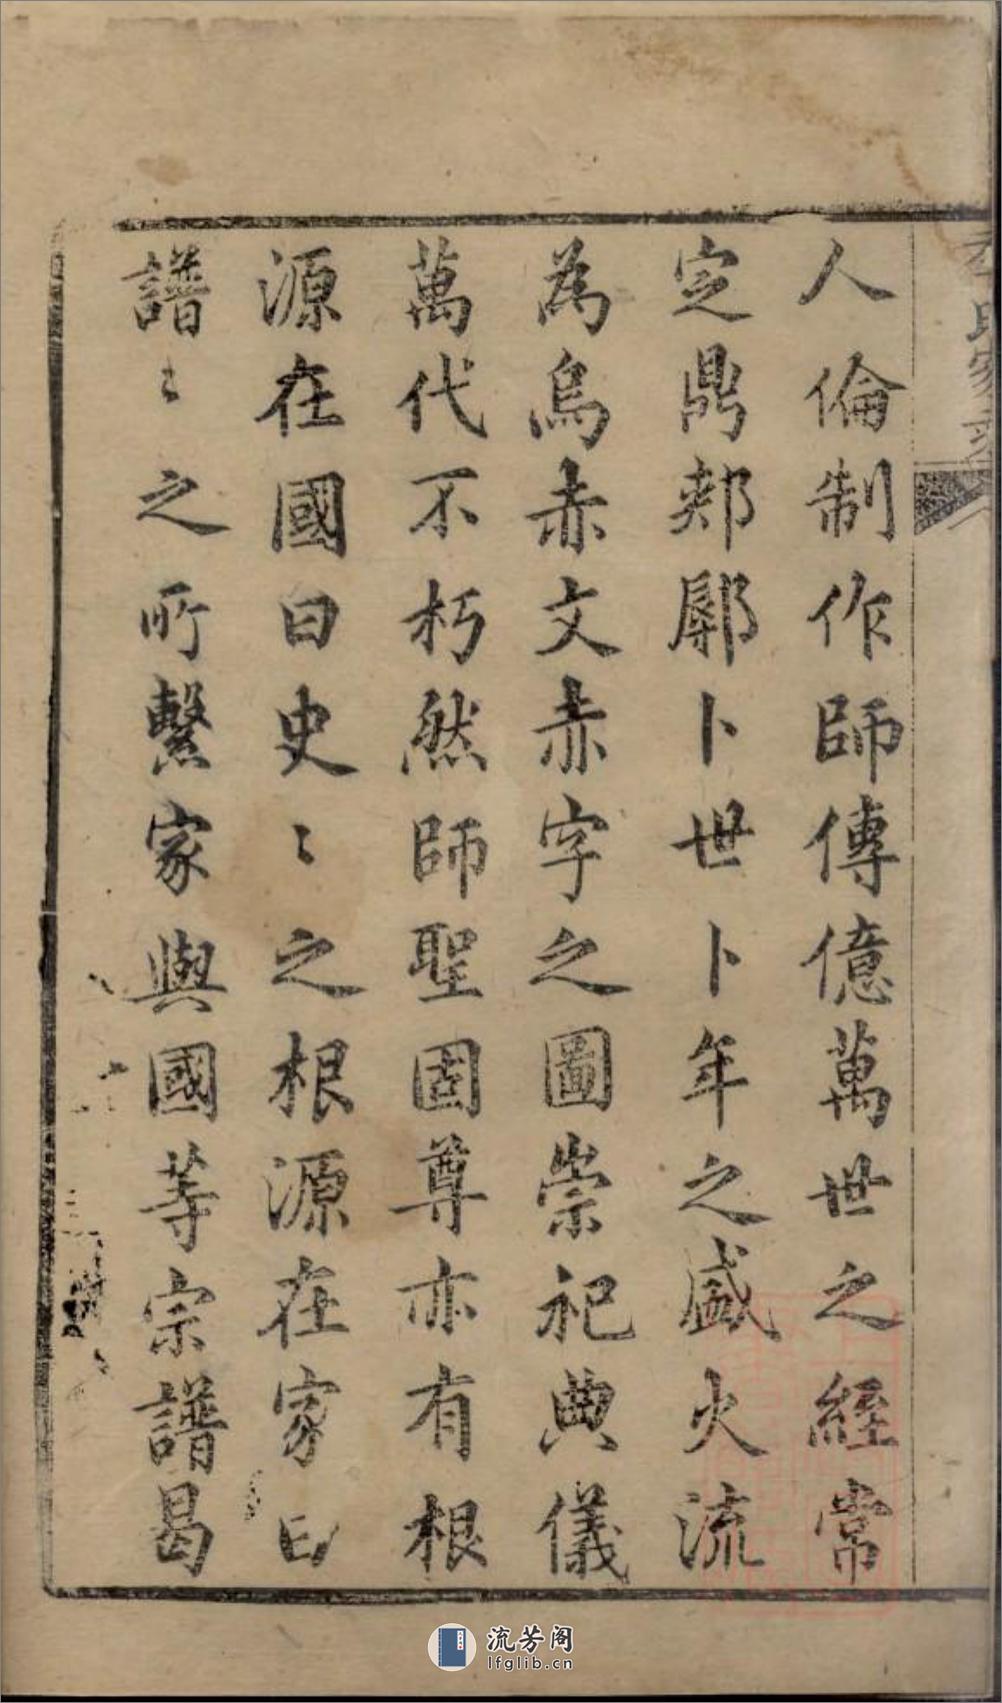 人倫制作師傳億萬世之經常
定鼎郟鄏卜世卜年之盛火流
為烏赤文赤字之圖崇祀典儀
萬代不朽然師聖固尊亦有根
源在國曰史〻之根源在家曰
譜〻之所繫家與國等宗譜曷
流芳阁
lfglib.cn